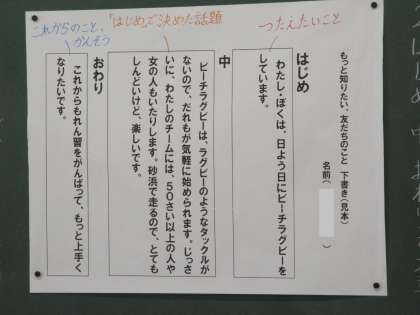 もっと知りたい、友だちのこと　下書き(見本)
名前(　　　)
つたえたいこと
はじめ
わたし・ぼくは、日よう日にビーチラグビーを
しています。
「はじめ」で決めた話題
中
ビーチラグビーは、ラグビーのようなタックルが
ないので、だれもが気軽に始められます。じっさ
いに、わたしのチームには、５０さい以上の人や
女の人もいたりします。砂浜で走るので、とても
しんどいけど、楽しいです。
これからのこと、
かんそう
おわり
これからもれん習をがんばって、もっと上手く
なりたいです。